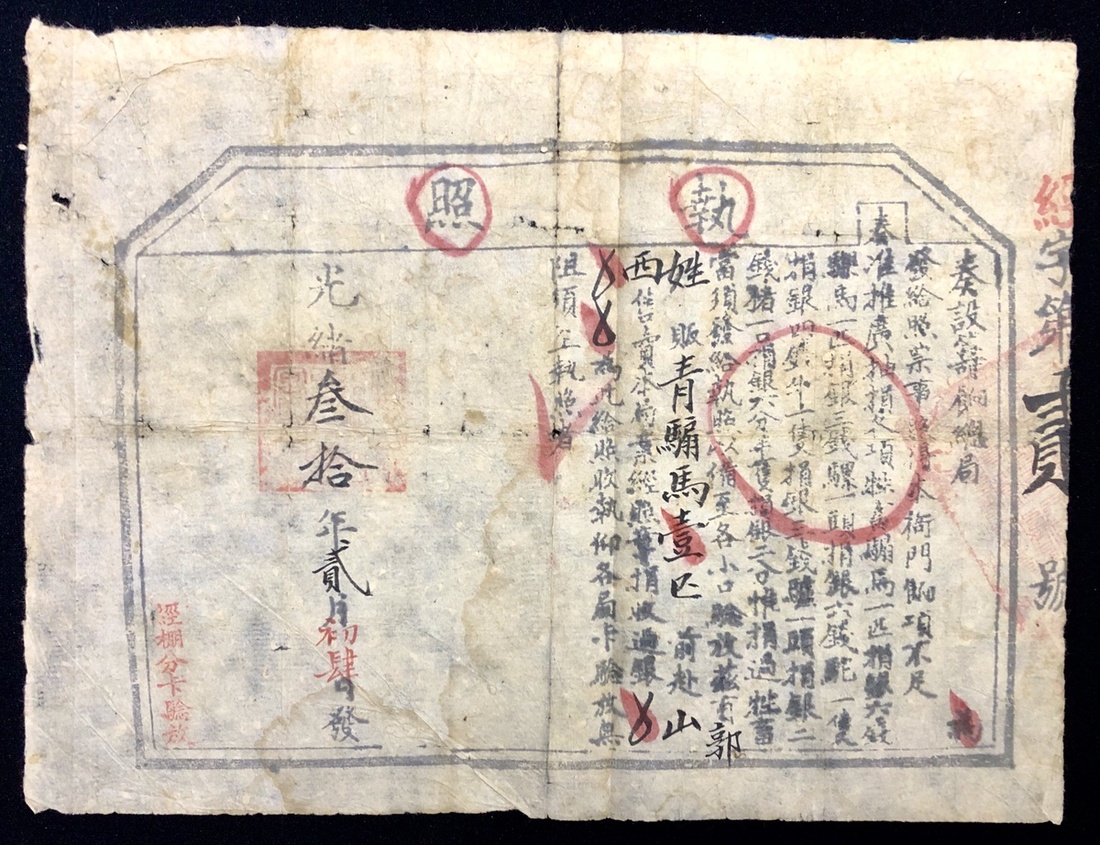 執照
奏設籌餉總局
發給照票事 本衙門餉項不足
奏准推廣抽捐各項牲畜騸馬一匹捐銀六錢
騍馬一匹捐銀三錢騾一頭捐銀六錢駝一隻
捐銀四錢牛一隻捐銀三錢驢一頭捐銀二
錢猪一口捐銀六分羊隻捐銀二分惟捐過牲畜
當須發給執照以備至各小口驗放茲有郭
姓販青騸馬壹匹前赴山
西售賣本衙業經照章捐收過銀
爲此給照收執仰各局卡驗放無
阻須至執照者
光緒叁拾年貳月初肆日發
經棚分卡驗放
經字第貳號